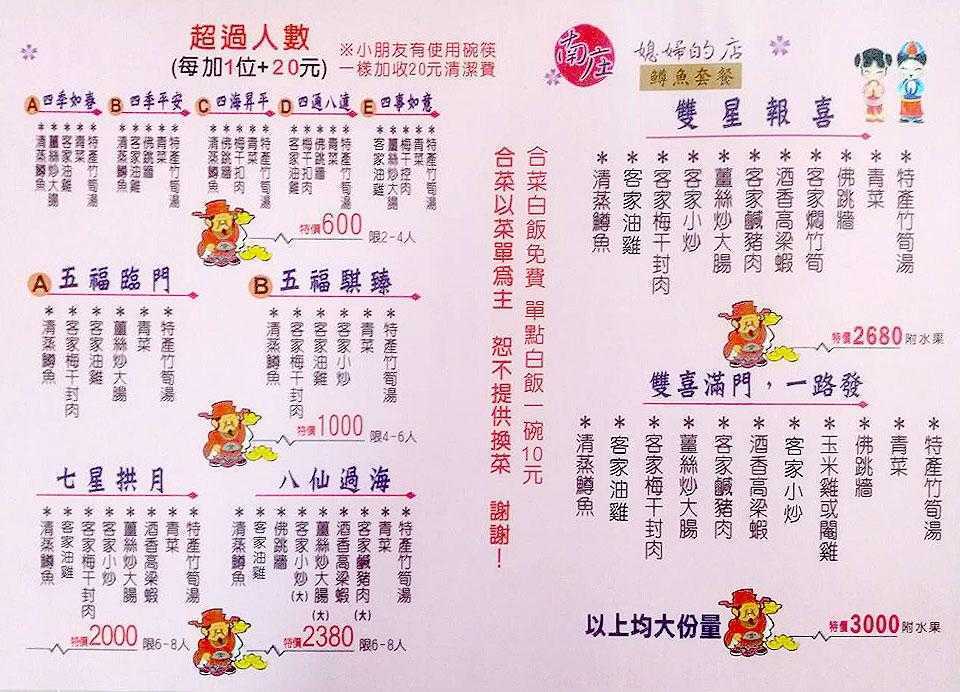 超過人數
(每加1位+20元)
※小朋友有使用碗筷
一樣加收20元清潔費
A四季如春
*清蒸鱒魚
*薑絲炒大腸
*客家油雞
*青菜
*特產竹筍湯
B四季平安
*清蒸鱒魚
*客家油雞
*佛跳牆
*青菜
*特產竹筍湯
C四海昇平
*清蒸鱒魚
*佛跳牆
*梅干扣肉
*青菜
*特產竹筍湯
D四通八達
*客家油雞
*梅干扣肉
*佛跳牆
*青菜
*特產竹筍湯
E四事如意
*客家油雞
*薑絲炒大腸
*梅干控肉
*青菜
*特產竹筍湯
特價600 限2-4人
A五福臨門
*清蒸鱒魚
*客家梅干封肉
*客家油雞
*薑絲炒大腸
*青菜
*特產竹筍湯
B五福騏臻
*清蒸鱒魚
*客家梅干封肉
*客家油雞
*客家小炒
*青菜
*特產竹筍湯
特價1000 限4-6人
七星拱月
*清蒸鱒魚
*客家油雞
*客家梅干封肉
*客家小炒
*薑絲炒大腸
*酒香高梁蝦
*青菜
*特產竹筍湯
特價2000 限6-8人
八仙過海
*清蒸鱒魚
*客家油雞
*佛跳牆
*客家小炒(大)
*薑絲炒大腸(大)
*酒香高梁蝦
*客家鹹豬肉(大)
*青菜
*特產竹筍湯
特價2380 限6-8人
合菜白飯免費 單點白飯一碗10元
合菜以菜單為主 恕不提供換菜 謝謝!
南庄
媳婦的店
鱒魚套餐
雙星報喜
*清蒸鱒魚
*客家油雞
*客家梅干封肉
*客家小炒
*薑絲炒大腸
*客家鹹豬肉
*酒香高梁蝦
*客家燜竹筍
*佛跳牆
*青菜
*特產竹筍湯
特價2680附水果
雙喜滿門，一路發
*清蒸鱒魚
*客家油雞
*客家梅干封肉
*薑絲炒大腸
*客家鹹豬肉
*酒香高梁蝦
*客家小炒
*玉米雞或閹雞
*佛跳牆
*青菜
*特產竹筍湯
以上均大份量
特價3000附水果